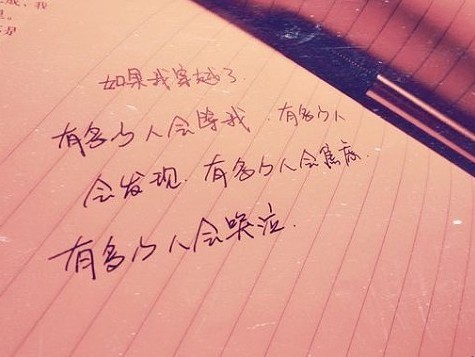 如果我穿越了.
有多少人会我.有多少人
会发现.有多少人会焦虑.
有多少人会哭泣.